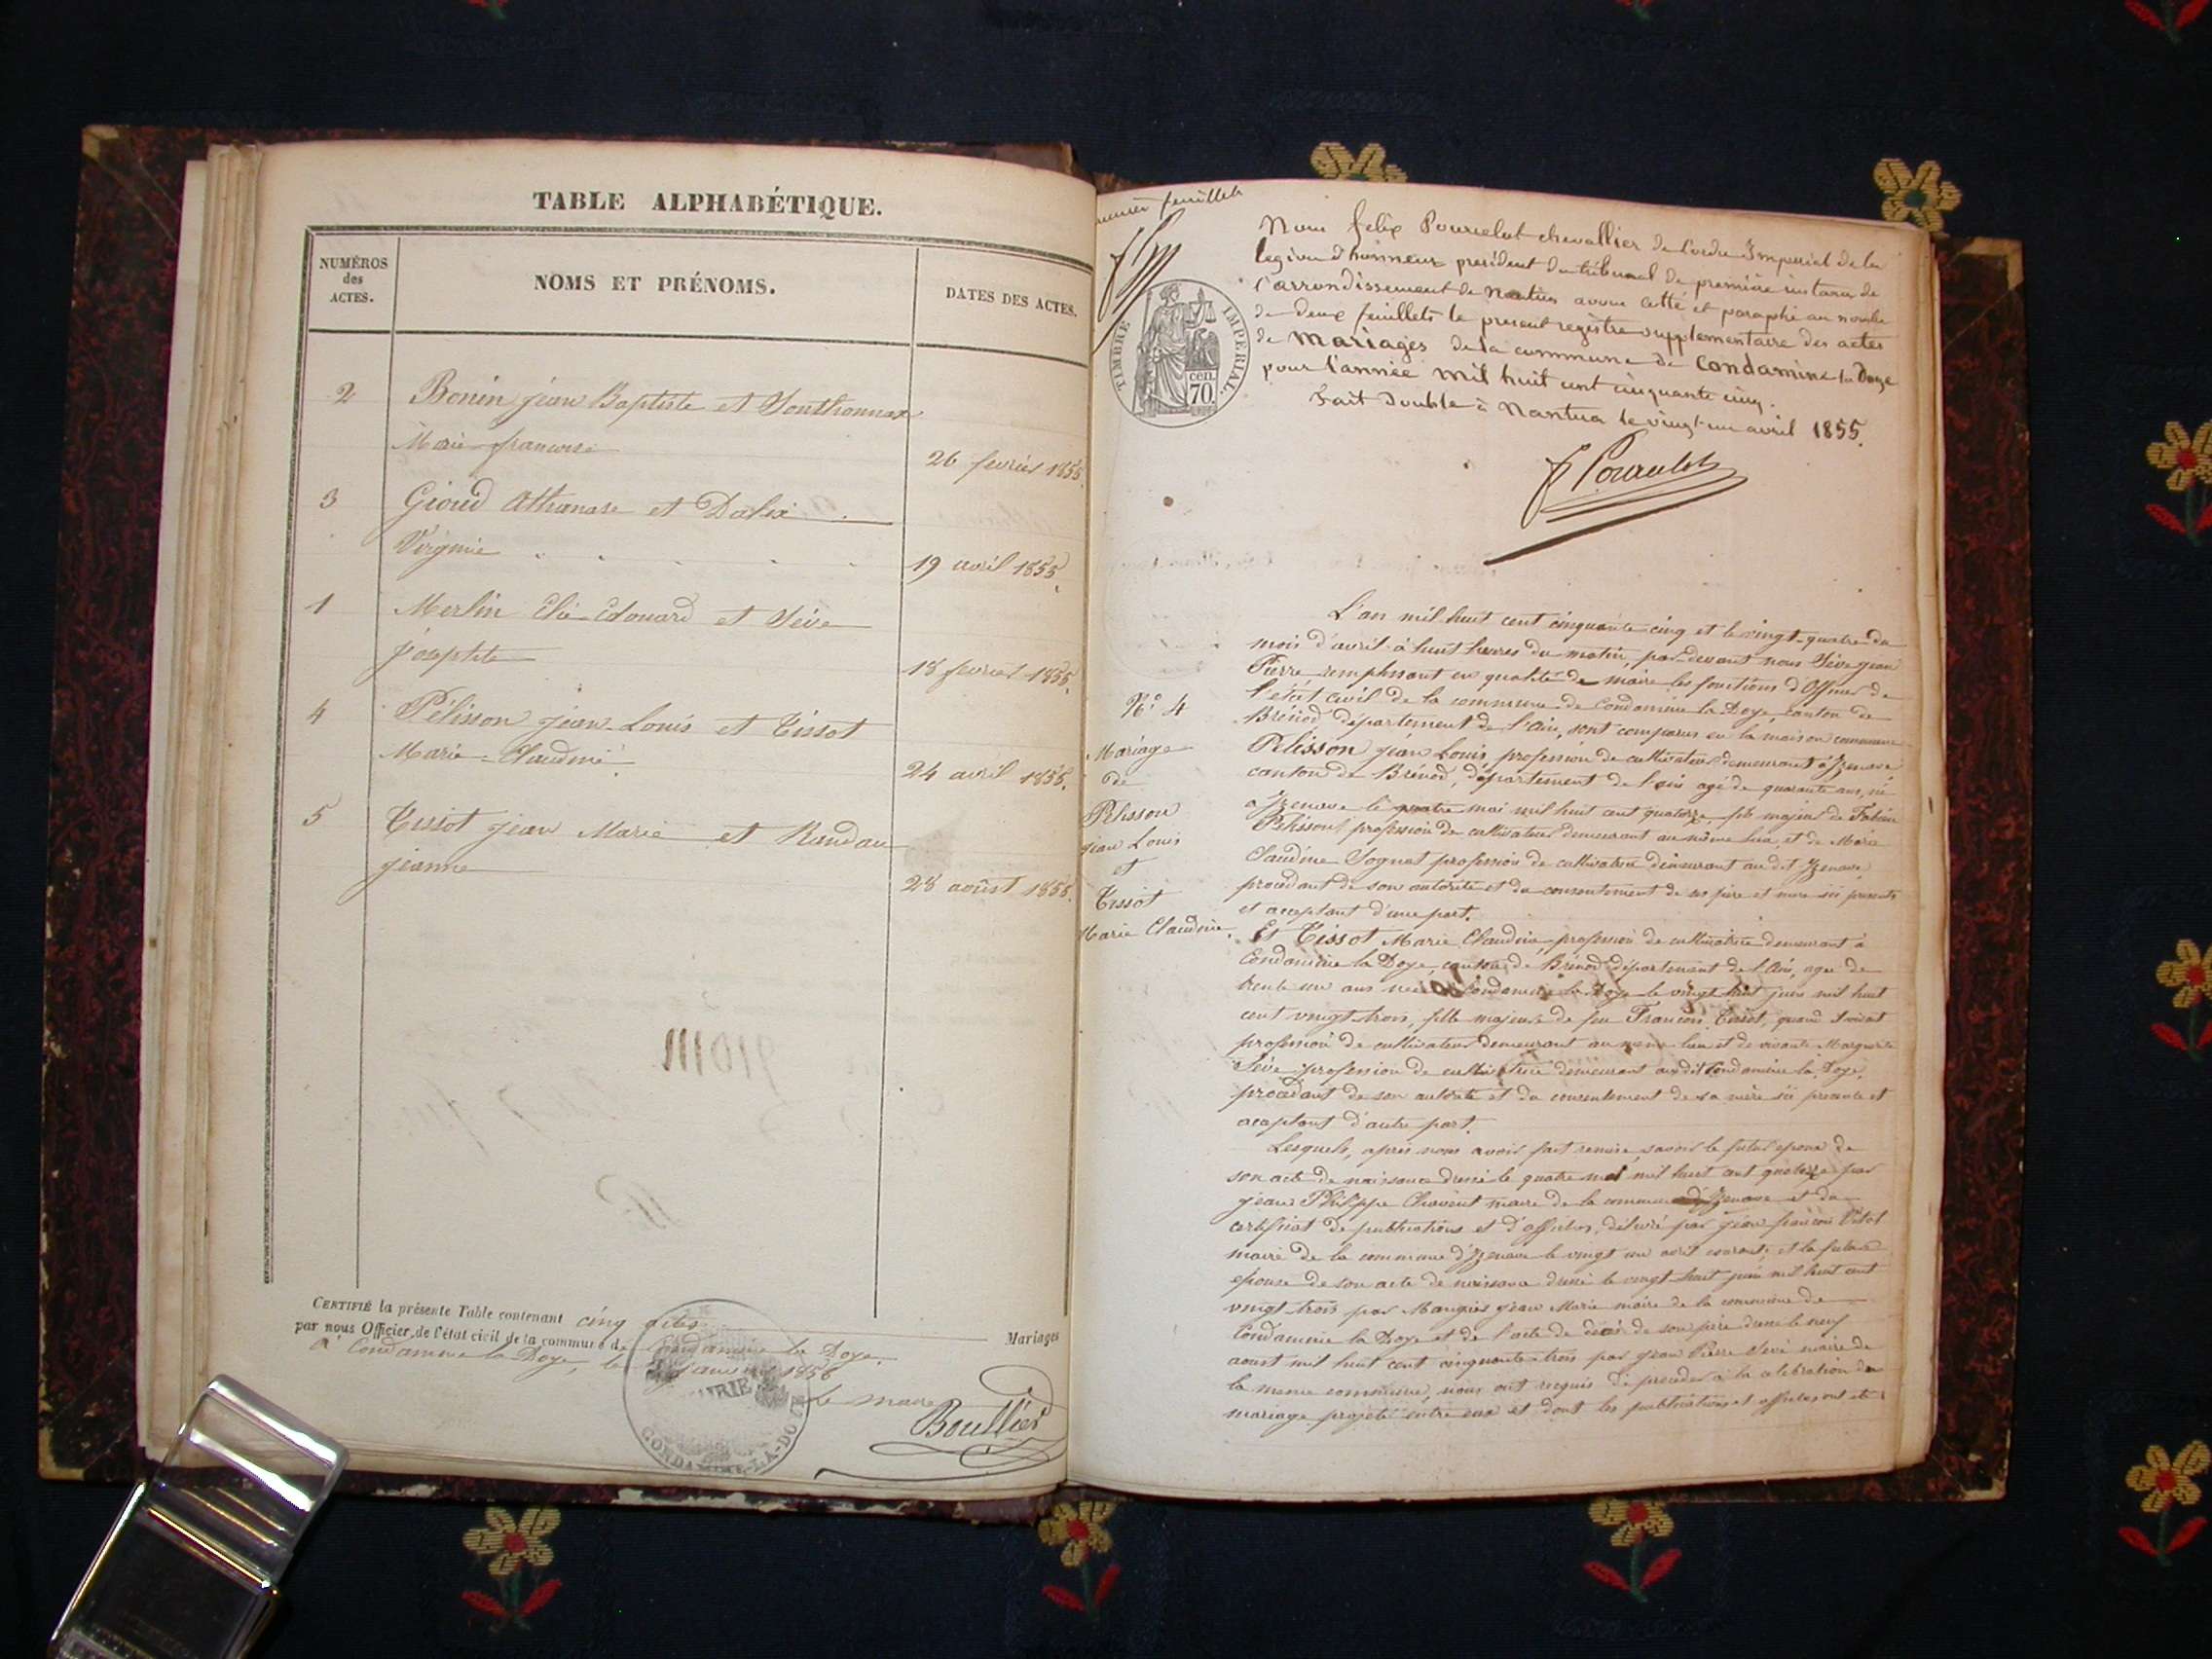 TABLE ALPHABÉTIQUE.
NUMÉROS
des
ACTES.
NOMS ET PRÉNOMS.
DATES DES ACTES.
2 Bonin jean Baptiste et Sonthonnax
Marie françoise
26 fevrier 1855.
3 Gioud Athanase et Dalix
Virginie
19 avril 1855.
1 Merlin Elie Edouard et Sève
josephte
18 fevrier 1855.
4 Pélisson jean-Louis et Tissot
Marie-Claudine
24 avril 1855.
5 Tissot jean Marie et Randau
jeanne
28 août 1855.
CERTIFIÉ la présente Table contenant cinq actes Mariages
par nous Officier de l'état civil de la commune de Condamine la Doye.
à Condamine la Doye, le janvier 1856
le maire
Boullier
MAIRIE
CONDAMINE-LA-DOYE
feuillet
TIMBRE IMPERIAL.
cen.
70.
Nous felix Pourcelot chevallier de l'ordre Imperial de la
legion d'honneur president du tribunal de première instance de
l'arrondissement de Nantua avons cotté et paraphé au nombre
de deux feuillets le present registre supplementaire des actes
de Mariages de la commune de Condamine la Doye
pour l'année mil huit cent cinquante cinq.
Fait double à Nantua le vingt-un avril 1855.
F Pourcelot
L'an mil huit cent cinquante cinq et le vingt-quatre du
mois d'avril à huit heures du matin, par devant nous Sève jean
Pierre, remplissant en qualité de maire les fonctions d'Officier de
l'état civil de la commune de Condamine la Doye, canton de
Brénod département de l'Ain, sont comparus en la maison commune
N.º 4
Mariage
de
Pélisson
jean Louis
et
Tissot
Marie Claudine.
Pélisson jean Louis, profession de cultivateur demeurant à Izenave
canton de Brénod, département de l'ain agé de quarante ans, né
à Izenave le quatre mai mil huit cent quatorze fils majeur de Fabien
Pélisson profession de cultivateur demeurant au même lieu, et de Marie
Claudine Sognat profession de cultivatrice demeurant au dit Izenave,
procédant de son autorité et du consentement de ses père et mère ici présents
et acceptant d'une part.
Et Tissot Marie Claudine, profession de cultivatrice demeurant à
Condamine la Doye, canton de Brénod département de l'Ain, agée de
trente un ans née à Condamine la Doye le vingt huit juin mil huit
cent vingt trois, fille majeure de feu François Tissot, quand vivait
profession de cultivateur demeurant au même lieu et de vivante Marguerite
Sève profession de cultivatrice demeurant audit Condamine la Doye,
procédant de son autorité et du consentement de sa mère ici présente et
acceptant d'autre part.
Lesquels, après nous avoir fait remise, savoir le futur epoux de
son acte de naissance dressé le quatre mai mil huit cent quatorze par
jean Philippe Chavent maire de la commune d'Izenave et du
certificat de publications et d'affiches, délivré par jean françois Vitot
maire de la commune d'Izenave le vingt un avril courant; et la future
épouse de son acte de naissance dressé le vingt-huit juin mil huit cent
vingt trois par Maugier jean Marie maire de la commune de
Condamine la Doye et de l'acte de décès de son père dressé le neuf
aoust mil huit cent cinquante-trois par jean Pierre Sève maire de
la meme commune, nous ont requis de proceder à la célébration du
mariage projeté entre eux et dont les publications et affiches ont été